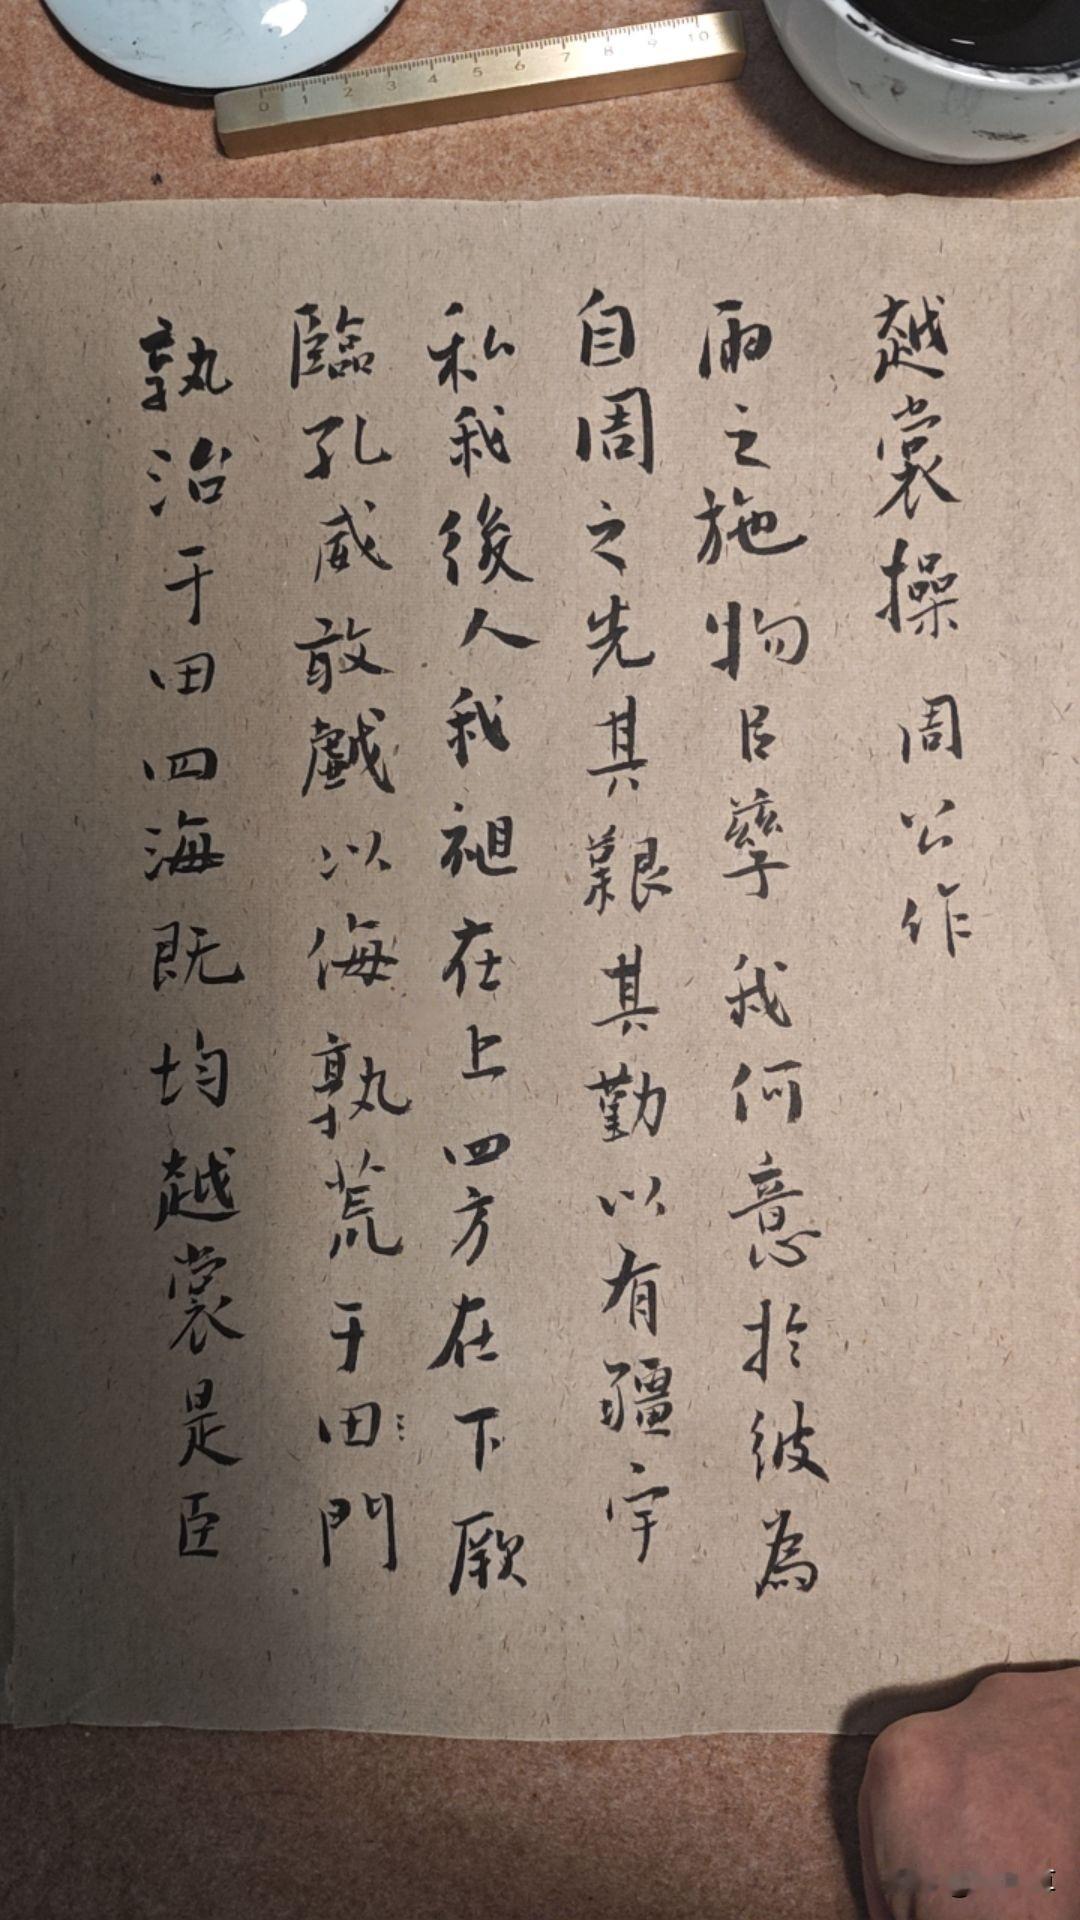 0 1 2 3 4 5 6 7 8 9 10
越裳操 周公作
雨之施物㠯孳我何意於彼為
自周之先其艱其勤以有疆宇
私我後人我祖在上四方在下厥
臨孔威敢戲以侮孰荒于田門
孰治于田四海既均越裳是臣